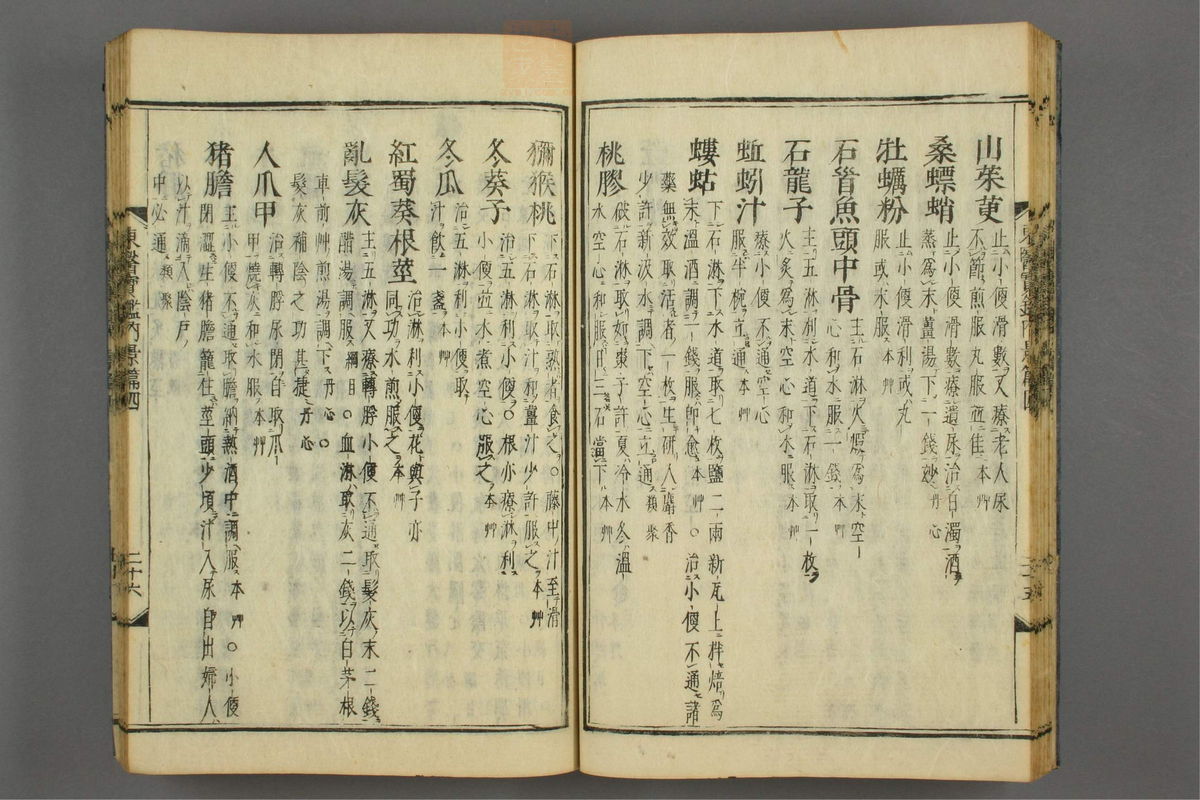 山茱萸
止小便滑數又療老人尿
不節煎服丸服並佳本艸
桑螵蛸
止小便滑數療遺尿治白濁酒
蒸爲末薑湯下二錢妙丹心
牡蠣粉
止小便滑利或丸
服或末服本艸
石首魚頭中骨
主石淋火煆爲末空
心和水服一錢本艸
石龍子
主五淋利水道下石淋取一枚
火炙爲末空心和水服本艸
蚯蚓汁
療小便不通空心
服半椀立通本艸
螻蛄
下石淋下水道取七枚鹽二兩新瓦上拌焙爲
末溫酒調一錢服卽愈本艸○治小便不通諸
藥無效取活者一枚生研入麝香
少許新汲水調下空心立通類聚
桃膠
破石淋取如棗子許夏冷水冬溫
水空心和服日三石當下本艸
獼猴桃
下石淋取汁和薑汁少許服之本艸
下石淋取熟者食之○藤中汁至滑
冬葵子
治五淋利小便○根亦療淋利
小便並水煮空心服之本艸
冬瓜
治五淋利小便取
汁飮一盞本艸
紅蜀葵根莖
治淋利小便花與子亦
同功水煎服之本艸
亂髮灰
主五淋又療轉脬小便不通取髮灰末二錢
醋湯調服綱目○血淋取灰二錢以白茅根
車前艸煎湯調下丹心○
髮灰補陰之功甚捷丹心
人爪甲
治轉脬尿閉自取爪
甲燒灰和水服本艸
猪膽
主小便不通取膽納熱酒中調服本艸○小便
閉澀生猪膽籠住莖頭少頃汁入尿自出婦人
以汁滴入陰戶
中必通類聚
東醫寶鑑內景篇四
二十五
東醫寶鑑內景篇四
二十六